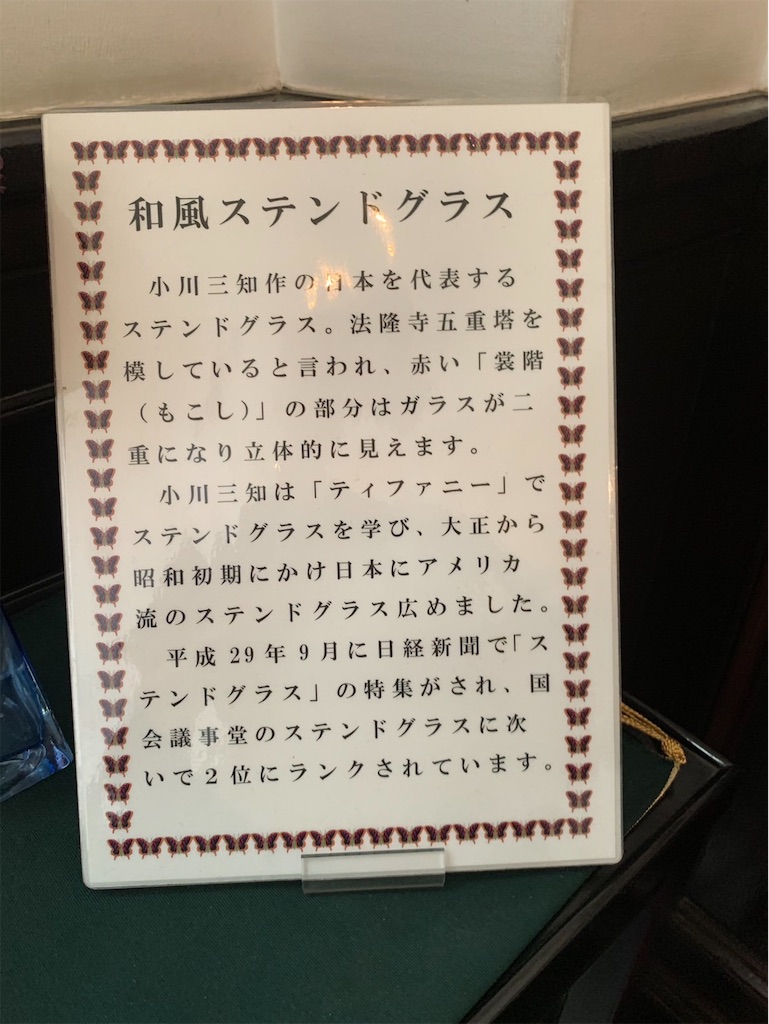 和風ステンドグラス
小川三知作の日本を代表する
ステンドグラス。法隆寺五重塔を
模していると言われ、赤い「裳階
（もこし）」の部分はガラスが二
重になり立体的に見えます。
小川三知は「ティファニー」で
ステンドグラスを学び、大正から
昭和初期にかけ日本にアメリカ
流のステンドグラス広めました。
平成29年9月に日経新聞で「ス
テンドグラス」の特集がされ、国
会議事堂のステンドグラスに次
いで2位にランクされています。